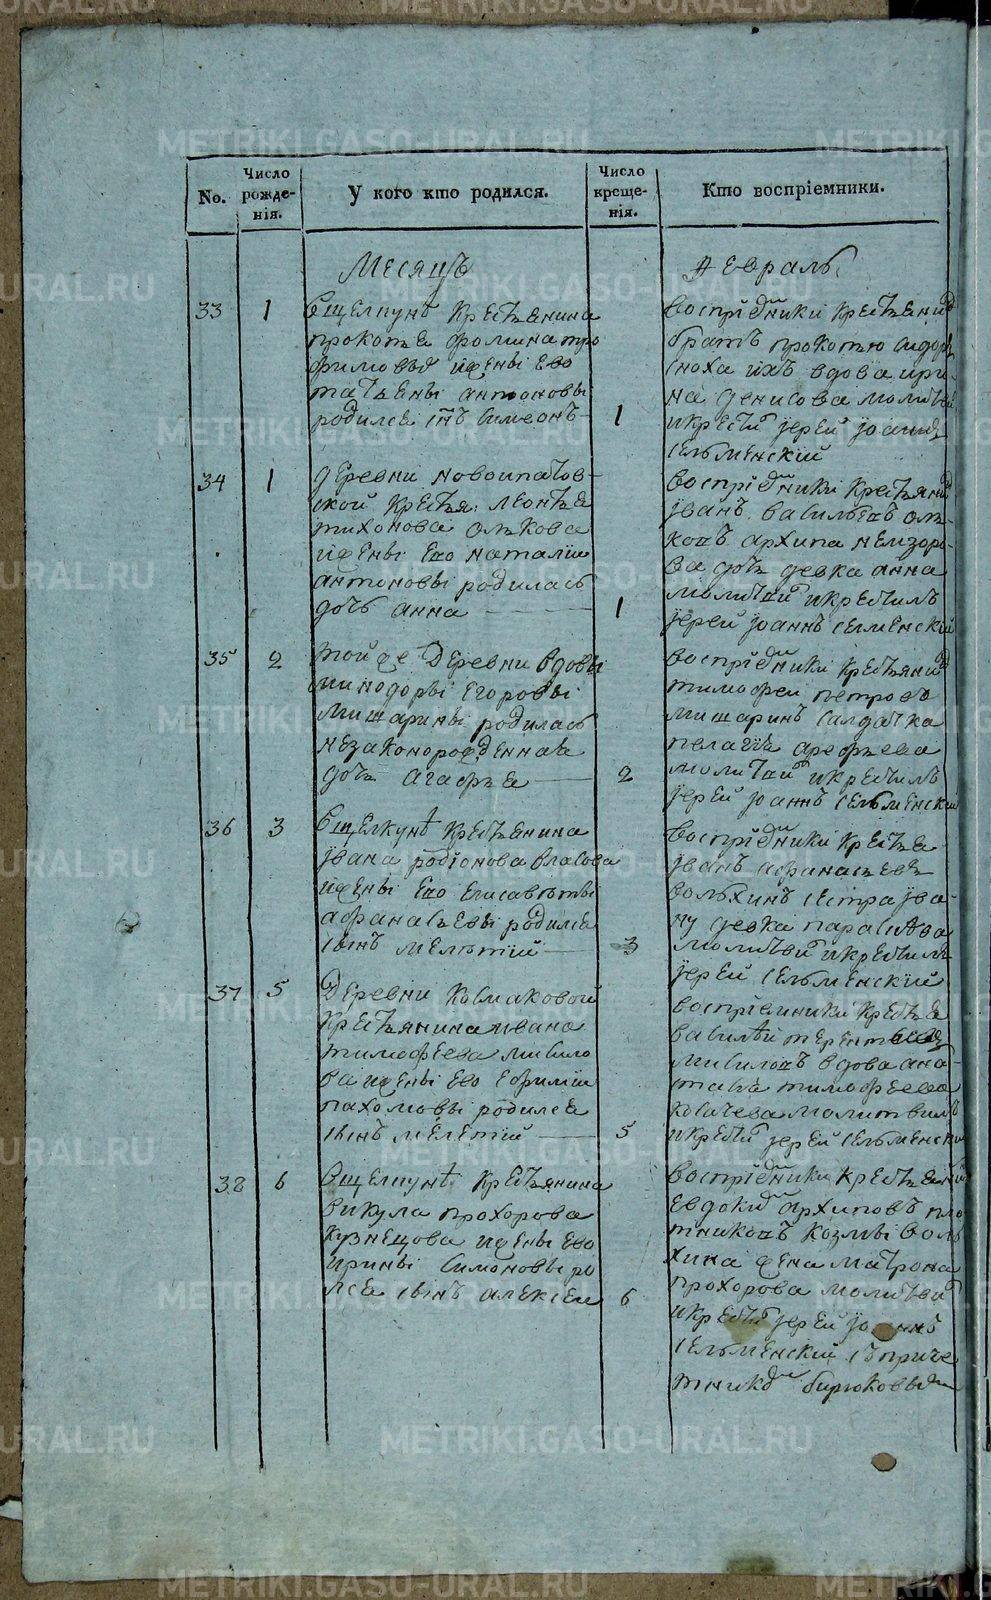 No.
Число рожде-нія.
У кого кто родился.
Число креще-нія.
Кто воспріемники.
Месяцъ
Февраль
33
1
Вщелкунѣ Крестьянина
прокопья фомина тро
фимова ижены Ево
татьяны антоновы
родился сынъ Симеонъ
1
воспріемники Крестьянинъ
братъ прокопью сидоръ
сноха ихъ вдова ири-
на денисова молитвилъ
икрестилъ јерей јоаннъ
сельменский
34
1
деревни новоипатов-
ской Крестья: леонтья
тихонова олькова
ижены Его наталии
антоновы родилась
дочь анна
1
воспріемники Крестьянинъ
јванъ васильевъ оль-
ковъ архипа немзоро-
ва дочь девка анна
молитвилъ икрестилъ
јерей јоаннъ селменский
35
2
тойже деревни вдовы
минодоры Егоровы
мишарины родилась
незаконорожденная
дочь агафья
2
воспріемники Крестьянинъ
тимофеи петровъ
мишаринъ салдатка
пелагия арефьева
молитвилъ икрестилъ
јерей јоаннъ сельменский
36
3
Вщелкунѣ Крестьянина
јвана родіонова власова
ижены Его Елисаветы
афанасьевы родился
сынъ мелетій
3
воспріемники Крестья
јванъ афанасьевъ
вольхинъ сестра јва-
ну девка параскева
молитвилъ икрестилъ
јерей сельменский
37
5
деревни Космаковой
Крестьянина ивана
тимофеева мивило
ва ижены Ево Ефимии
пахомовы родился
сынъ мелетій
5
воспріемники Крестья
василѣй терентьевъ
мивиловъ вдова ана-
тимофеева
молитвилъ
икрестилъ јерей сельменский
38
6
Вщелкунѣ Крестьянина
викула прохорова
Кузнецова ижены Ево
ирины Симоновы ро
лся сынъ алексеи
6
воспріемники Крестьянинъ
Евдокимъ архиповъ пло
тниковъ козмы воль
хина жена матрона
прохорова молитвилъ
икрестилъ јерей јоаннъ
сельменский съприче
тникомъ бирюковымъ
METRIKI.GASO-URAL.RU